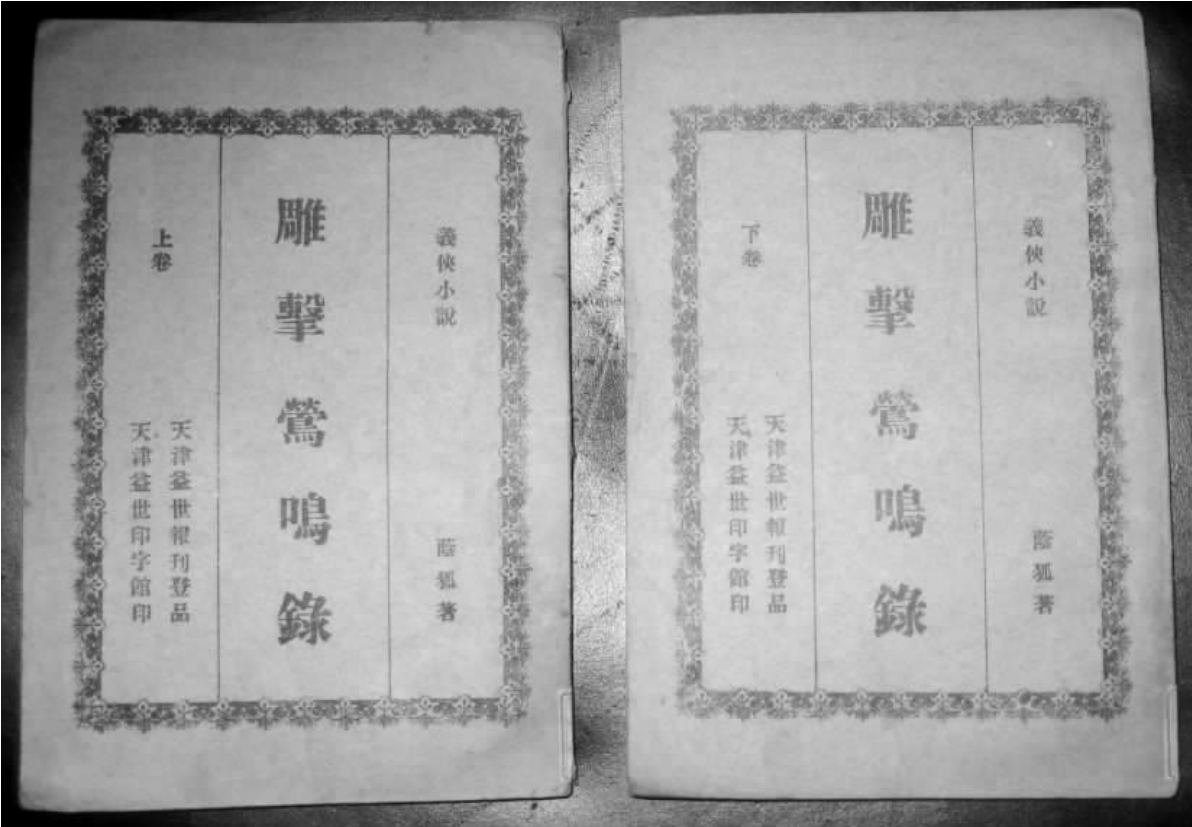 義俠小說
蔭狐著
雕擊鶯鳴錄
上卷
天津益世報刊登品
天津益世印字館印
義俠小說
蔭狐著
雕擊鶯鳴錄
下卷
天津益世報刊登品
天津益世印字館印